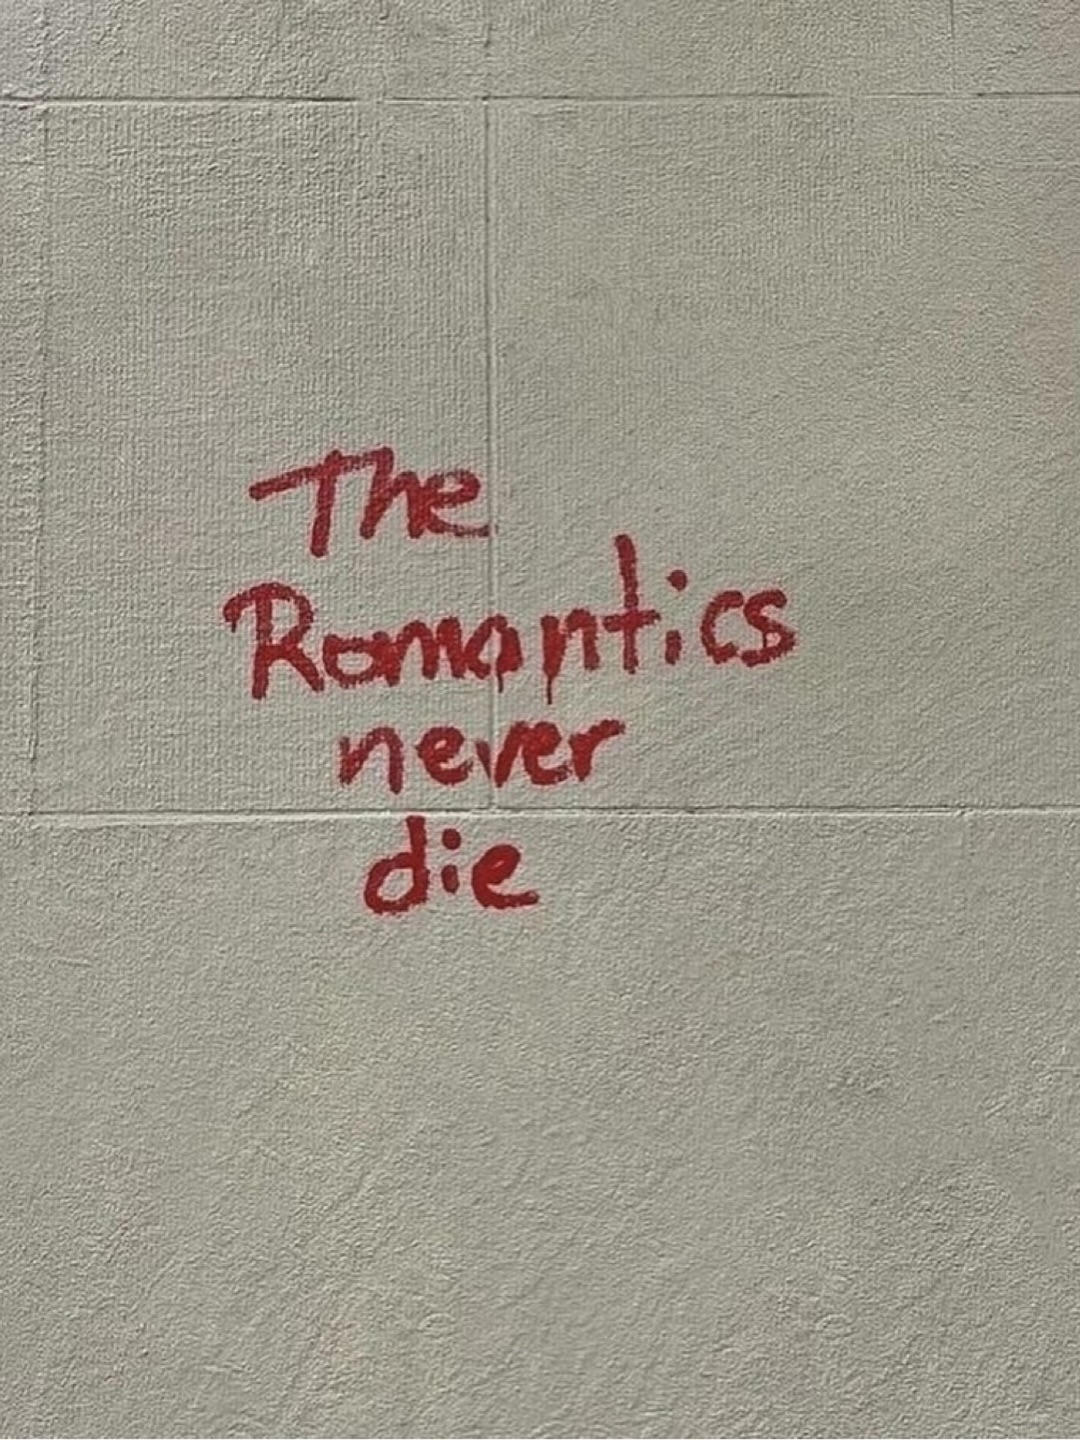 The
Romantics
never
die